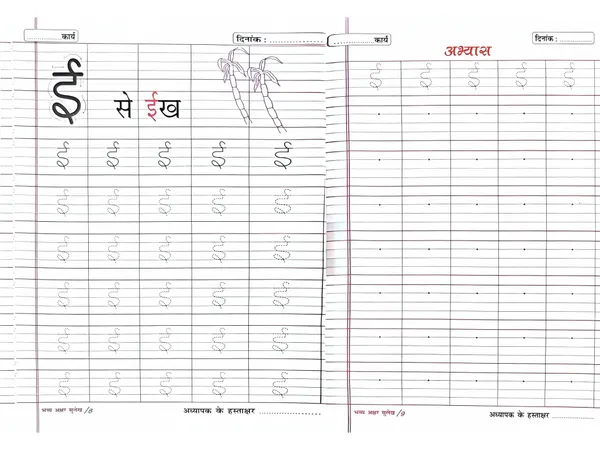 कार्य
दिनांक :
ई
से ईख
ई ई ई ई ई
ई ई ई ई ई
ई ई ई ई ई
ई ई ई ई ई
ई ई ई ई ई
ई ई ई ई ई
भव्य अक्षर सुलेख /8
अध्यापक के हस्ताक्षर
कार्य
दिनांक :
अभ्यास
ई ई ई ई ई
भव्य अक्षर सुलेख /9
अध्यापक के हस्ताक्षर